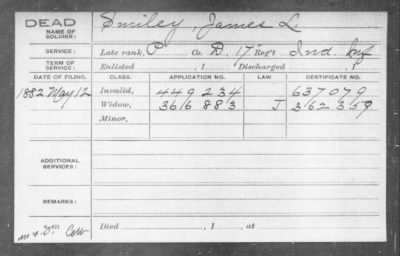 DEAD
NAME OF SOLDIER: Smiley, James L.
SERVICE: Late rank, P Co. D, 17" Reg't Ind. Inf
TERM OF SERVICE: Enlisted , 1 Discharged , 1
DATE OF FILING. CLASS. APPLICATION NO. LAW. CERTIFICATE NO.
1882 May 12 Invalid, 449234 637079
Widow, 366883 J 362359
Minor,
ADDITIONAL SERVICES:
REMARKS:
Died , 1 , at